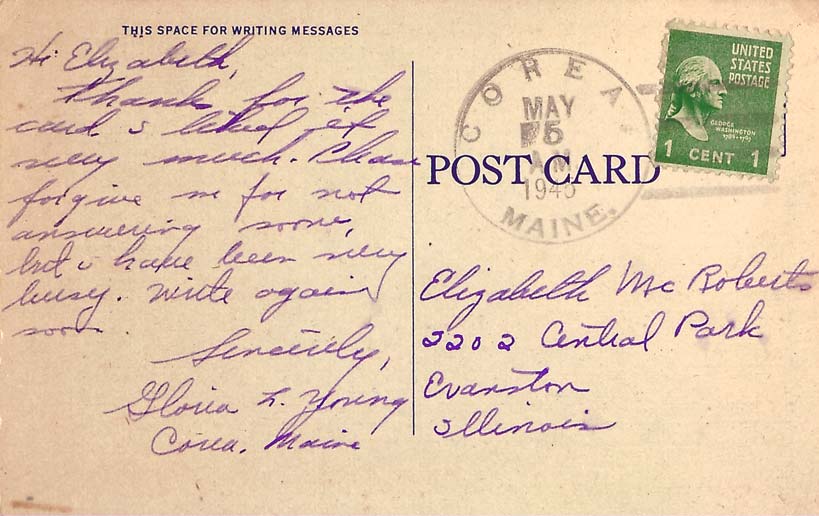 THIS SPACE FOR WRITING MESSAGES
Hi Elizabeth,
Thanks for the
card. I liked it
very much. Please
forgive me for not
answering sooner,
but i have been very
busy. Write again
soon.
Sincerely,
Gloria L. Young
Corea, Maine
COREA
MAY
5
AM
194
MAINE.
UNITED
STATES
POSTAGE
GEORGE
WASHINGTON
1789-1797
1 CENT 1
POST CARD
Elizabeth Mc Roberts
2202 Central Park
Evanston
Illinois